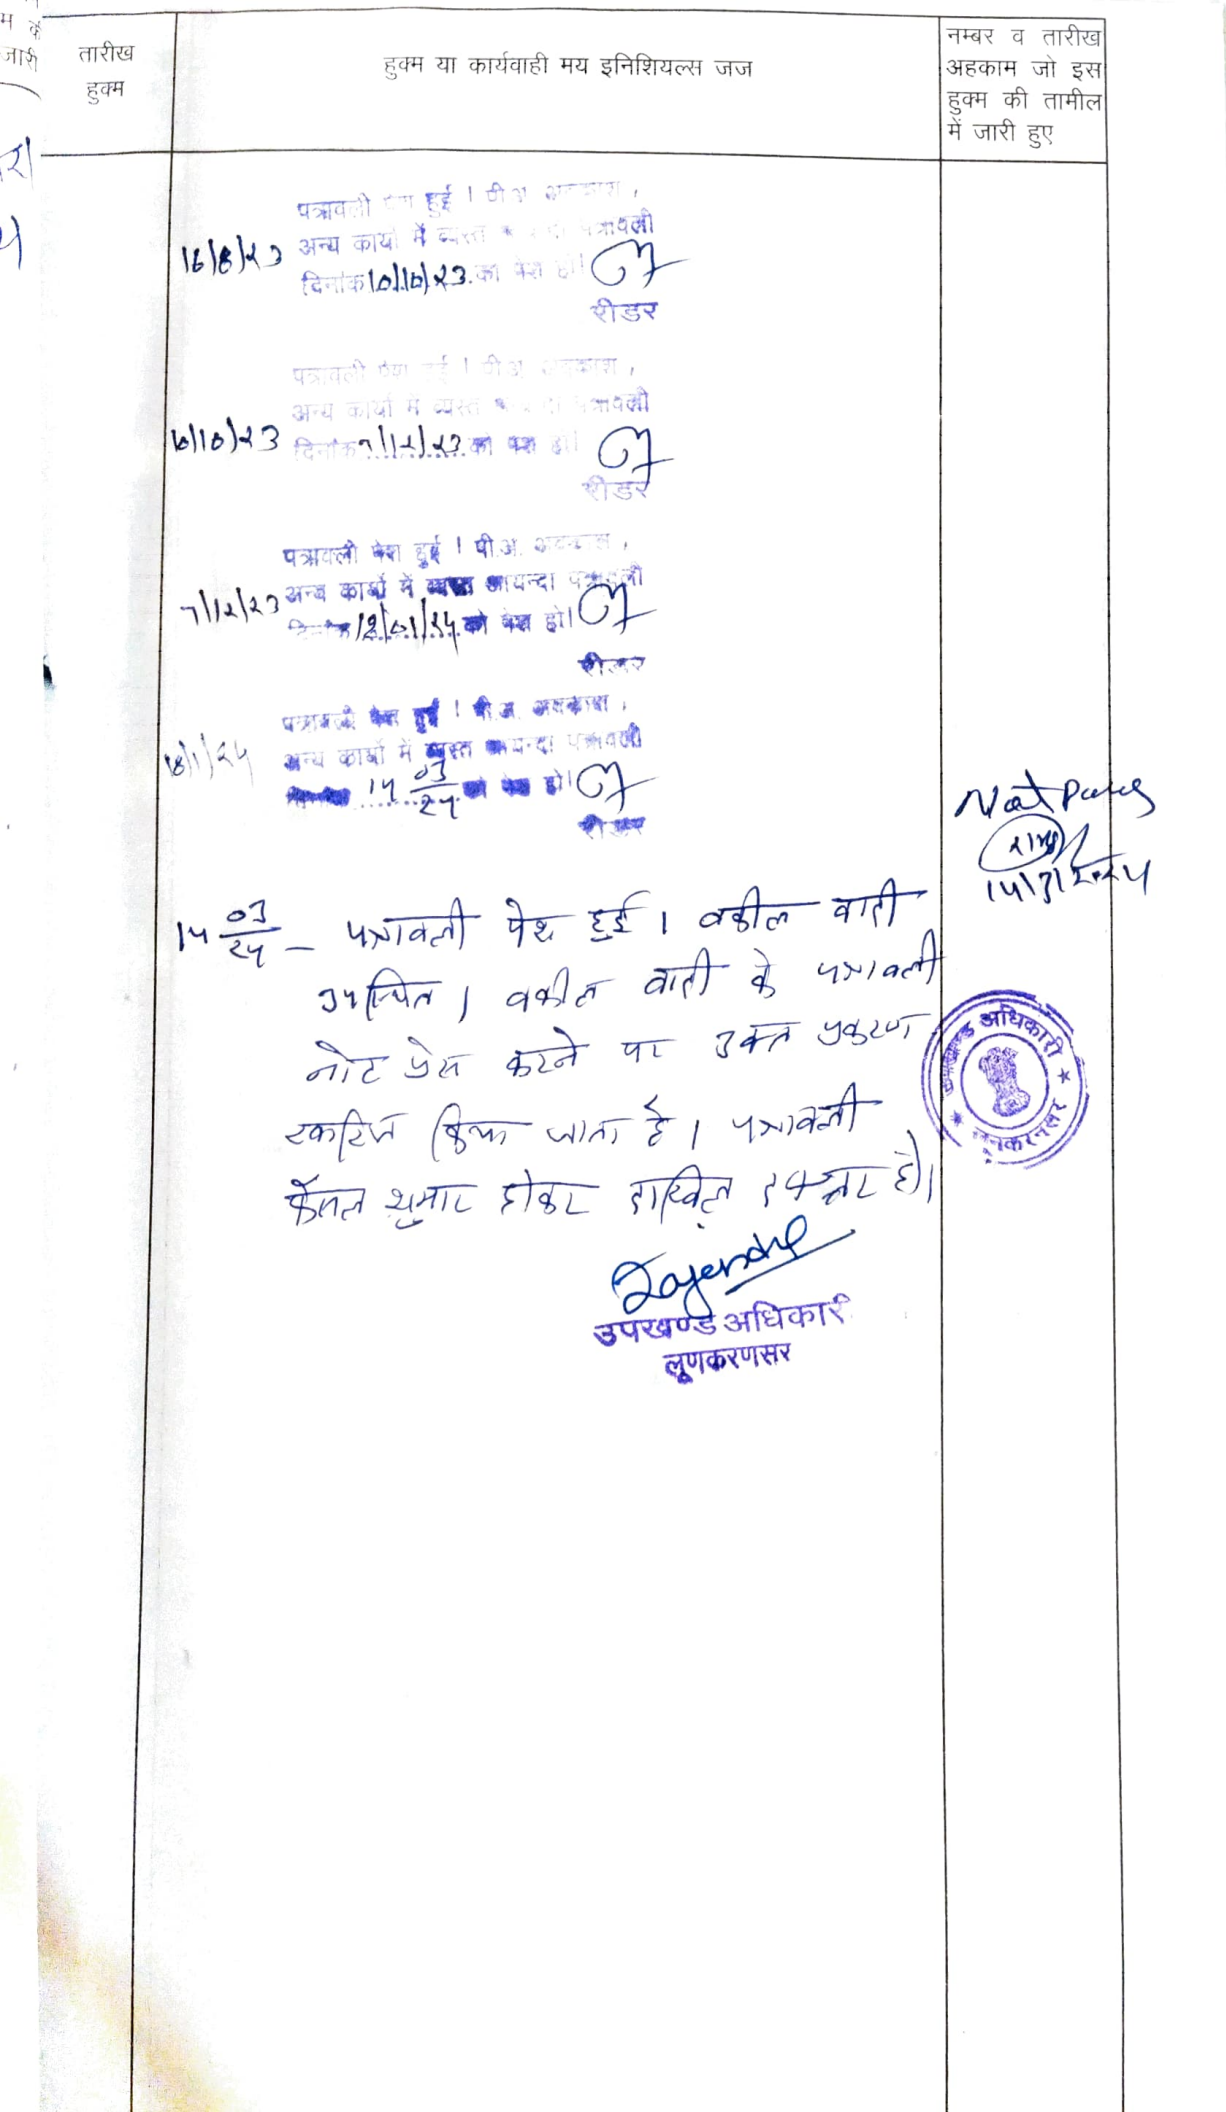 तारीख
हुक्म
हुक्म या कार्यवाही मय इनिशियल्स जज
नम्बर व तारीख
अहकाम जो इस
हुक्म की तामील
में जारी हुए
पत्रावली पेश हुई । पी.अ. अवकाश ,
अन्य कार्यो में व्यस्त पत्रावली
16/8/23
दिनांक 10/10/23 को पेश हो।
रीडर
पत्रावली पेश हुई । पी.अ. अवकाश ,
अन्य कार्यो में व्यस्त पत्रावली
10/10/23
दिनांक 7/12/23 को पेश हो।
रीडर
पत्रावली पेश हुई । पी.अ. अवकाश ,
अन्य कार्यो में व्यस्त आयन्दा पत्रावली
7/12/23
दिनांक 18/01/24 को पेश हो।
रीडर
पत्रावली पेश हुई । पी.अ. अवकाश ,
अन्य कार्यो में व्यस्त आयन्दा पत्रावली
18/1/24
14 03/24 को पेश हो।
रीडर
Not Press
14/3/2024
14 03/24 – पत्रावली पेश हुई । वकील वादी
उपस्थित । वकील वादी के पत्रावली
नोट प्रेस करने पर उक्त प्रकरण
खारिज किया जाता है । पत्रावली
फैसल शुमार होकर दाखिल दफ्तर हो।
Rajendra
उपखण्ड अधिकारी
लूणकरणसर
उपखण्ड अधिकारी
लूनकरनसर